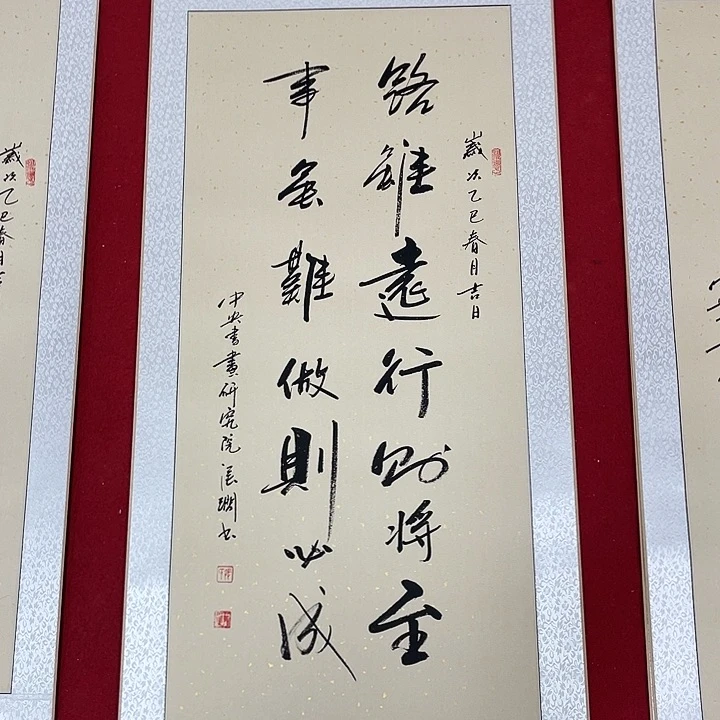 歲次乙巳春月吉日
路雖遠行则將至
事虽難做則必成
中央書畫研究院書
歲次乙巳春月吉